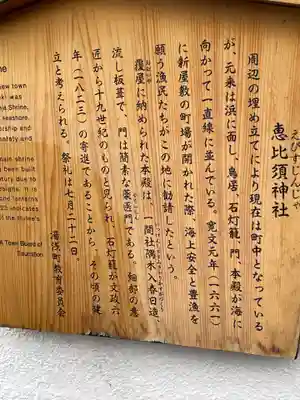 えびすじんじゃ
恵比須神社
周辺の埋め立てにより現在は町中となっている
が、元来は浜に面し、鳥居、石灯籠、門、本殿が海に
向かって一直線に並んでいる。寛文元年(一六六一)
に新屋敷の町場が開かれた際、海上安全と豊漁を
願う漁民たちがこの地に勧請したという。
覆屋に納められた本殿は、一間社隅木入春日造、
流し板葺で、門は簡素な薬医門である。細部の意
匠から十九世紀のものと見られ、石灯籠が文政六
年(一八二三)の寄進であることから、その頃の建
立と考えられる。祭礼は七月二十二日。
湯浅町教育委員会
ne
new town
ki was
d Shrine,
hermen,
orship and
afety and
ain shrine
been built
ry due to
signs. It is
lanterns
23 indicates
the
shrine's
Town Board of
Education